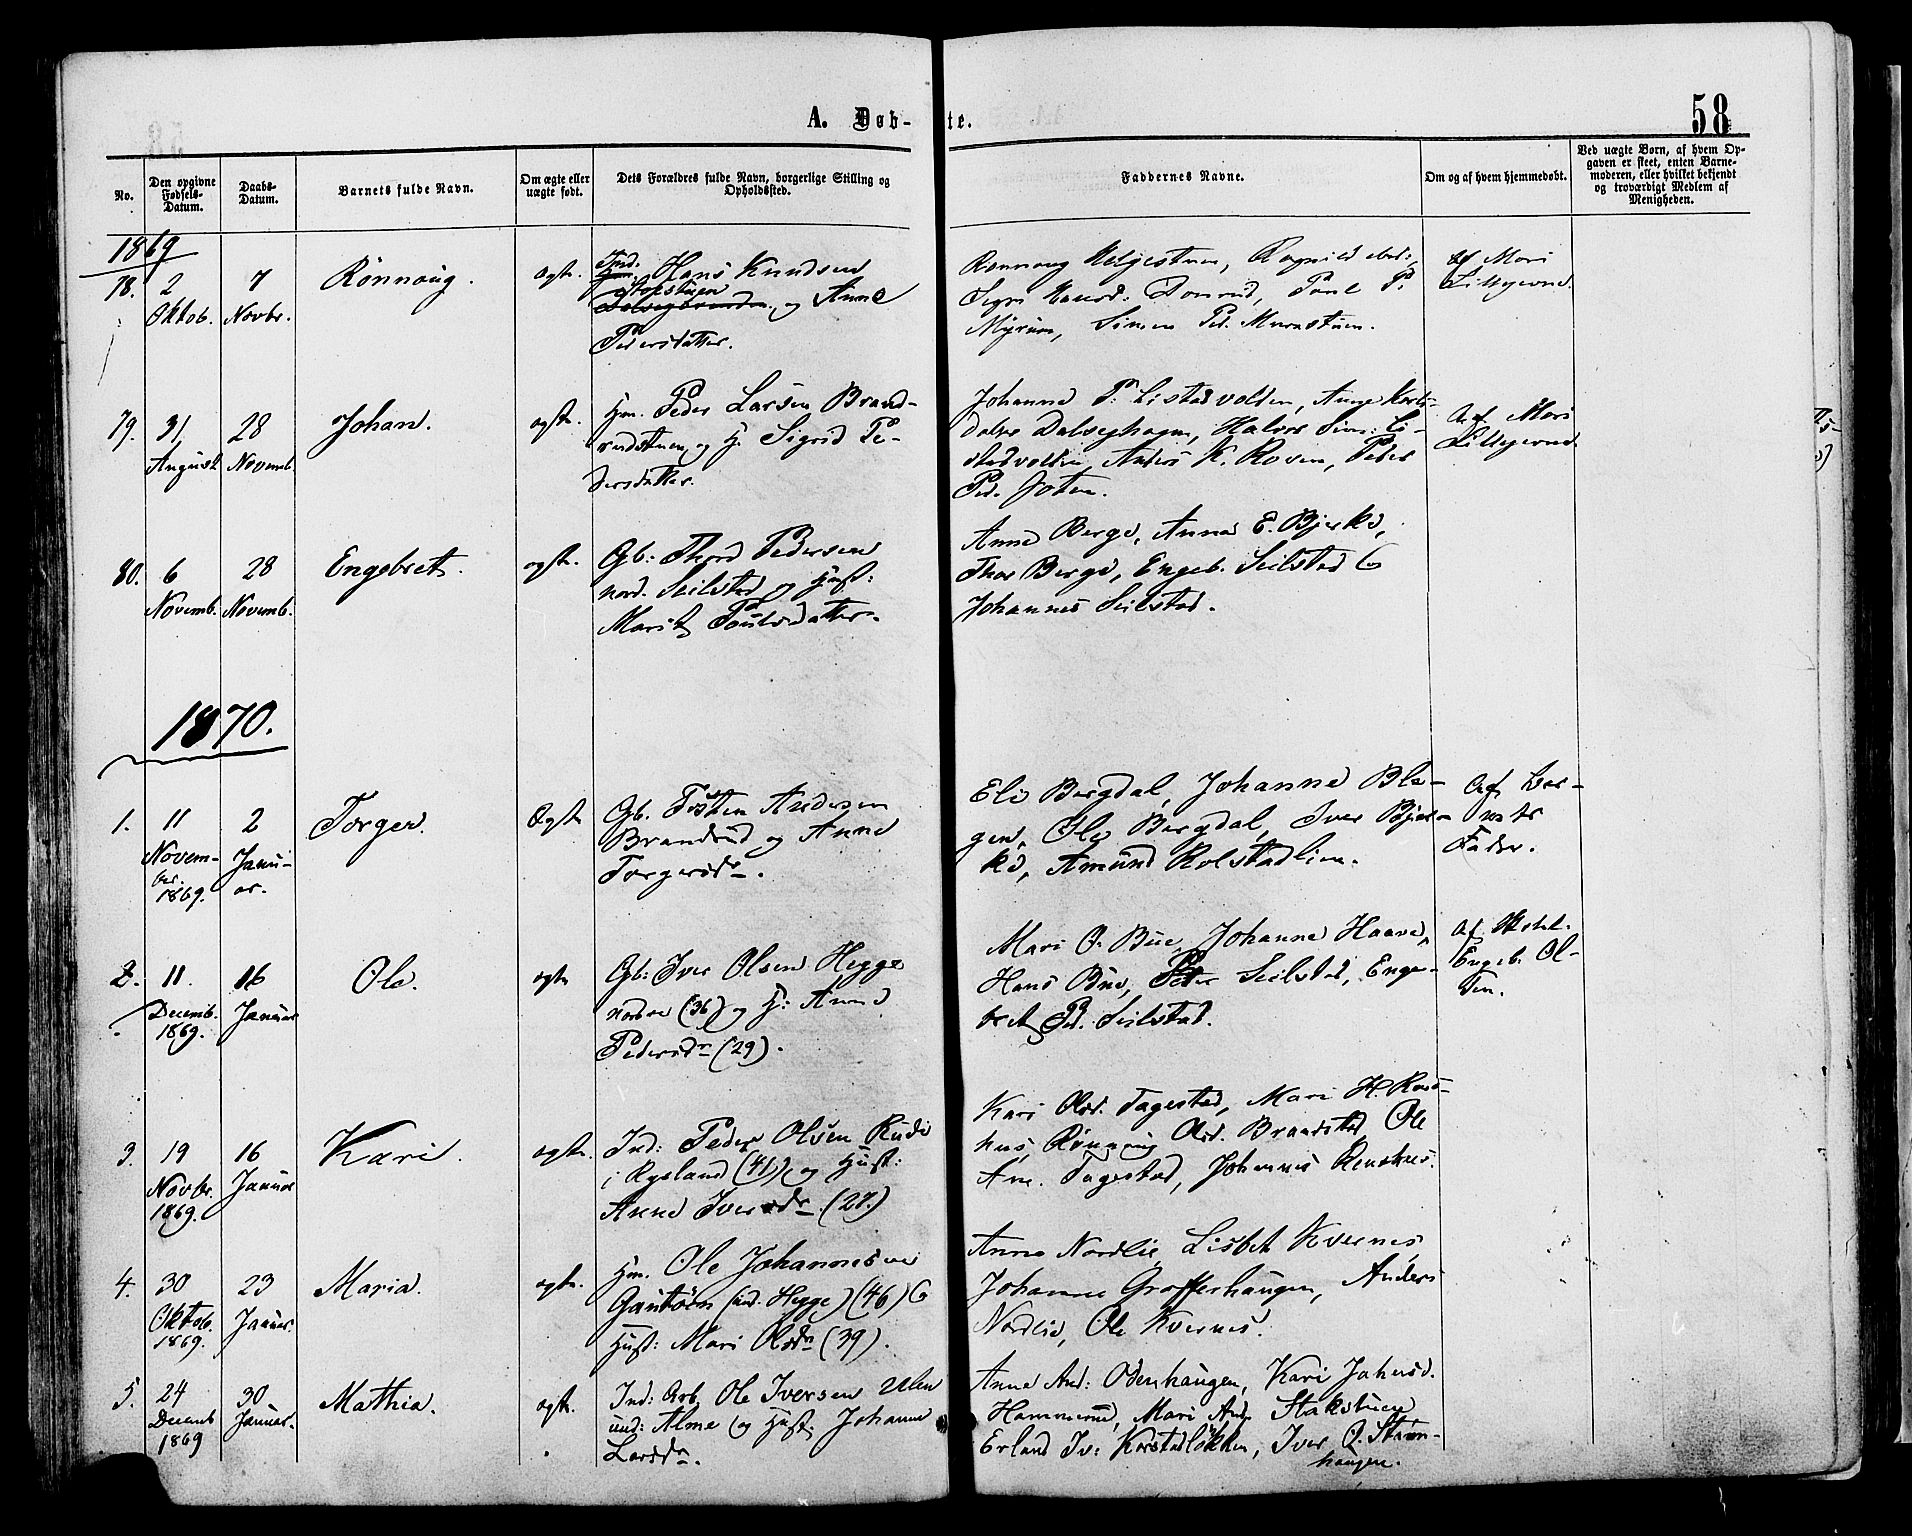 A. Døb-
te.
58
No.
Den opgivne Fødsels-Datum.
Daabs-Datum.
Barnets fulde Navn.
Om ægte eller uægte født.
Dets Forældres fulde Navn, borgerlige Stilling og Opholdssted.
Faddernes Navne.
Om og af hvem hjemmedøbt.
Ved uægte Børn, af hvem Opgaven er skeet, enten Barnemoderen, eller hvilket bekjendt og troværdigt Medlem af Menigheden.
1869
78. 2 Oktob.
7 Novbr.
Rønnoug.
ægte.
Ind. Hans Knudsen
og Anne
Pedersdatter.
Paul P.
Myrum, Simen Pd.
Af Mari
79. 31 August
28 Novemb.
Johan.
ægte.
Hm. Peder Larsen Brand-
rudstuen og H. Sigrid Pe-
dersdatter.
Johanne P. Listadvolden, Anne
Halvor Sim: Li-
stadvolden, Anders K. Roven, Peder
Pd. Joten.
Af Mari
80. 6 Novemb.
28 Novemb.
Engebret.
ægte.
Gb: Thord Pedersen
nord. Seilstad og Hust:
Marit Poulsdatter.
Anne Berge, Anne E. Bjerke,
Thor Berge, Engeb. Seilstad
Johannes Seilstad.
1870.
1. 11 Novem-
ber.
1869.
2 Janu-
ar.
Torger.
Ægte
Gb. Tosten Andersen
Brandrud og Anne
Torgersdr.
Eli Bergdal, Johanne Ble-
gen, Ole Bergdal, Iver Bjer-
ke, Amund Rolstadlien.
Af Bar-
nets
Fader.
2. 11. Decemb.
1869.
16 Januar
Ole.
ægte
Gb: Iver Olsen Hegge
nordre (36) og H: Anne
Pedersdr (29).
Mari O. Bue, Johanne Haave,
Hans Bue, Peder Seilstad, Enge-
bret Pd. Seilstad.
af
Engeb. Ol-
sen.
3. 19 Novbr.
1869.
16 Januar
Kari.
ægte.
Ind: Peder Olsen Rudi
i Rysland (41) og Hust:
Anne Iversdr. (27.)
Kari Olsd. Fagestad, Mari H.
hus, Rønnoug Olsd. Brandstad Ole
Am. Fagestad, Johannes
4. 30 Oktob.
1869.
23 Januar.
Maria.
ægte.
Hm. Ole Johannesen
(ind. Hegge) (46)
Hust: Mari Olsdr (39).
Anne Nordlie, Lisbet Kvernes,
Johanne Grofferhaugen, Anders
Nordlie, Ole Kvernes.
5. 24 Decemb
1869
30 Januar.
Mathia.
ægte.
Ind: Arb. Ole Iversen Ulen
und: Alme og Hust. Johanne
Larsdr.
Anne And: Odenhaugen, Kari Johansd.
Hammerud, Mari And. Stakstuen
Erland Iv: Korstadløkken, Iver O. Strøm-
haugen.